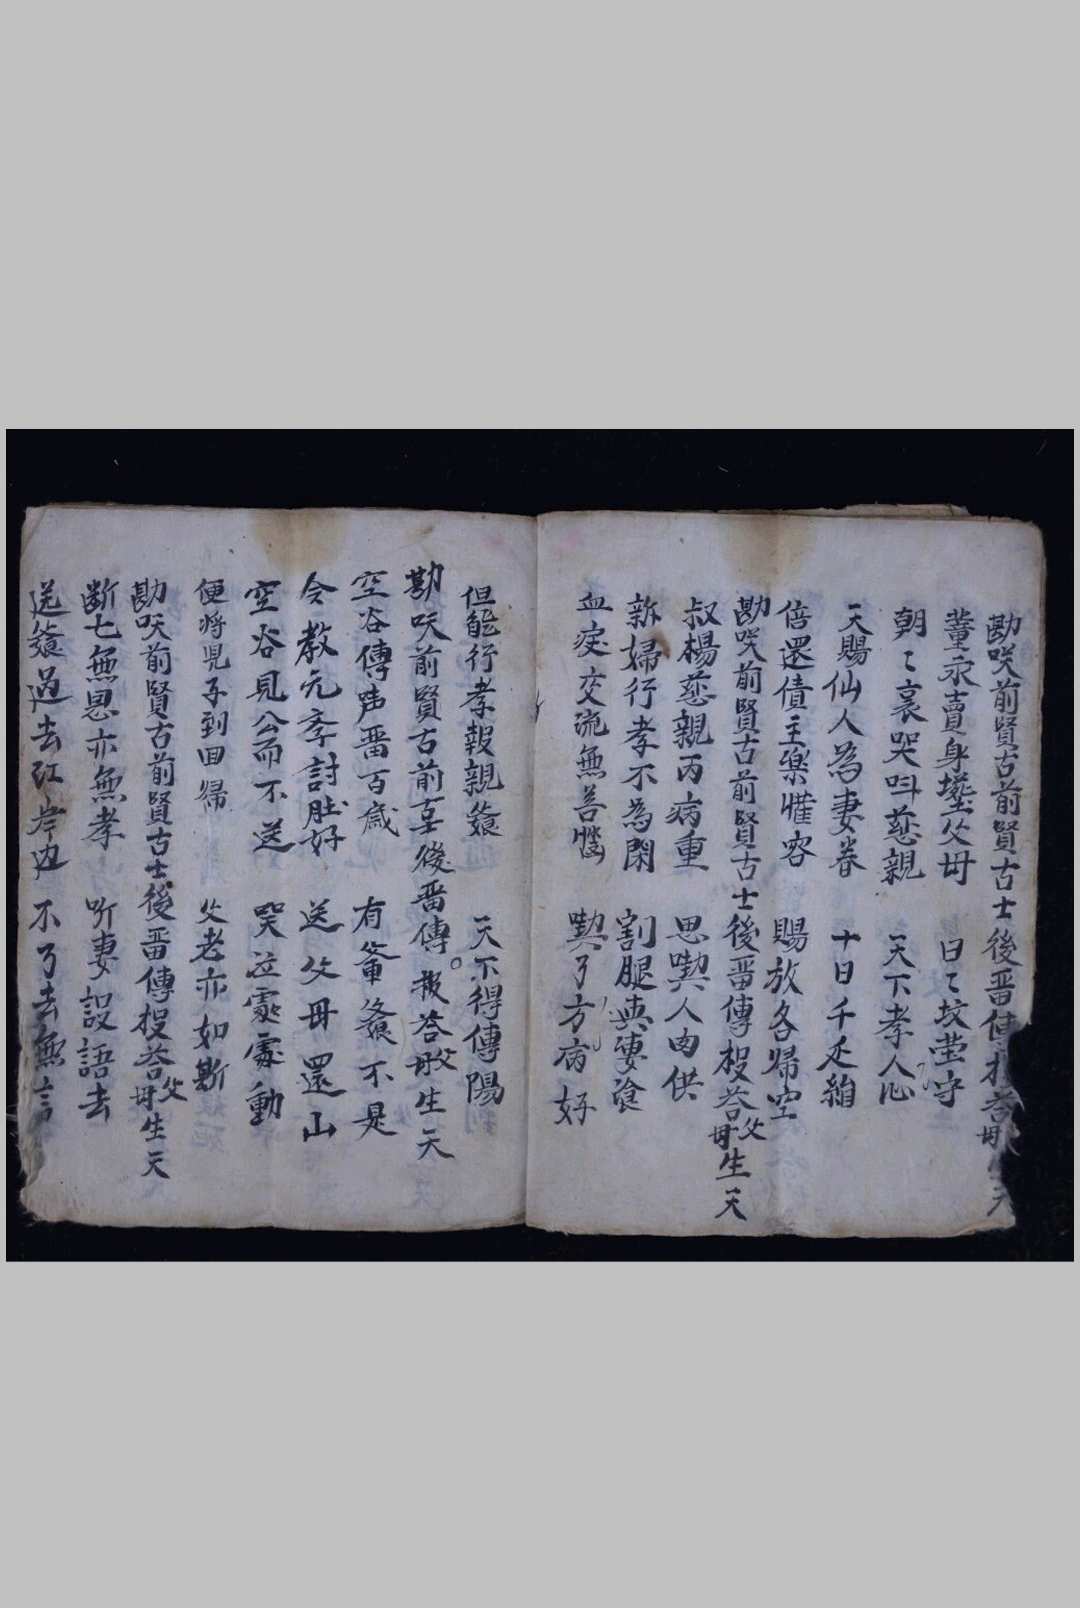 勘咲前賢古前賢古士後畨傳
董永賣身塟父母 日〻坟塋守
朝〻哀哭呌慈親 天下孝人心
天賜仙人為妻眷 十日千疋絹
倍還債主樂懽容 賜放各帰空
勘咲前賢古前賢古士後畨傳投荅父母生天
叔楊慈親丙病重 思喫人肉供
新婦行孝不為閑 割腿與婆飡
血淚交流無善惱 喫了方病好
但能行孝報親養 天下得傳陽
勘咲前賢古前 後畨傳。报荅父母生天
空谷傳声畨百歲 有軰養不是
令教元孝討肚好 送父母還山
空谷見公而不送 哭泣震處動
便將児子到囬歸 父老亦如斯
勘咲前賢古前賢古士後畨傳投荅父母生天
断七無恩亦無孝 听妻設語去
送養過去江岸边 不了去無言